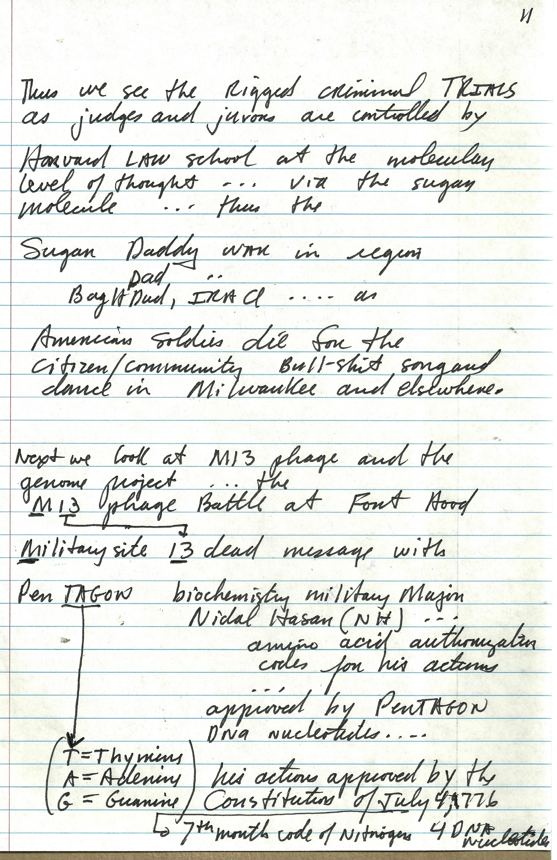 11
Thus we see the Rigged criminal TRIALS
as judges and jurors are controlled by
Harvard LAW school at the molecular
level of thought ... via the sugar
molecule ... thus the
Sugar Daddy WAR in region
Dad ..
BagHDad, IRAQ .... as
American soldies die for the
citizen/community Bull-shit song and
dance in Milwaukee and elsewhere.
Next we look at M13 phage and the
genome project ... the
M13 phage Battle at Font Hood
Military site 13 dead message with
PenTAGON biochemistry military Major
Nidal Hasan (NH) ...
amino acid authorization
codes for his actions
....
approved by PENTAGON
DNA nucleotides....
T = Thymine
A = Adenine his actions approved by the
G = Guanine Constitution of July 4, 1776
7th month code of Nitrogen 4 DNA
nucleotides